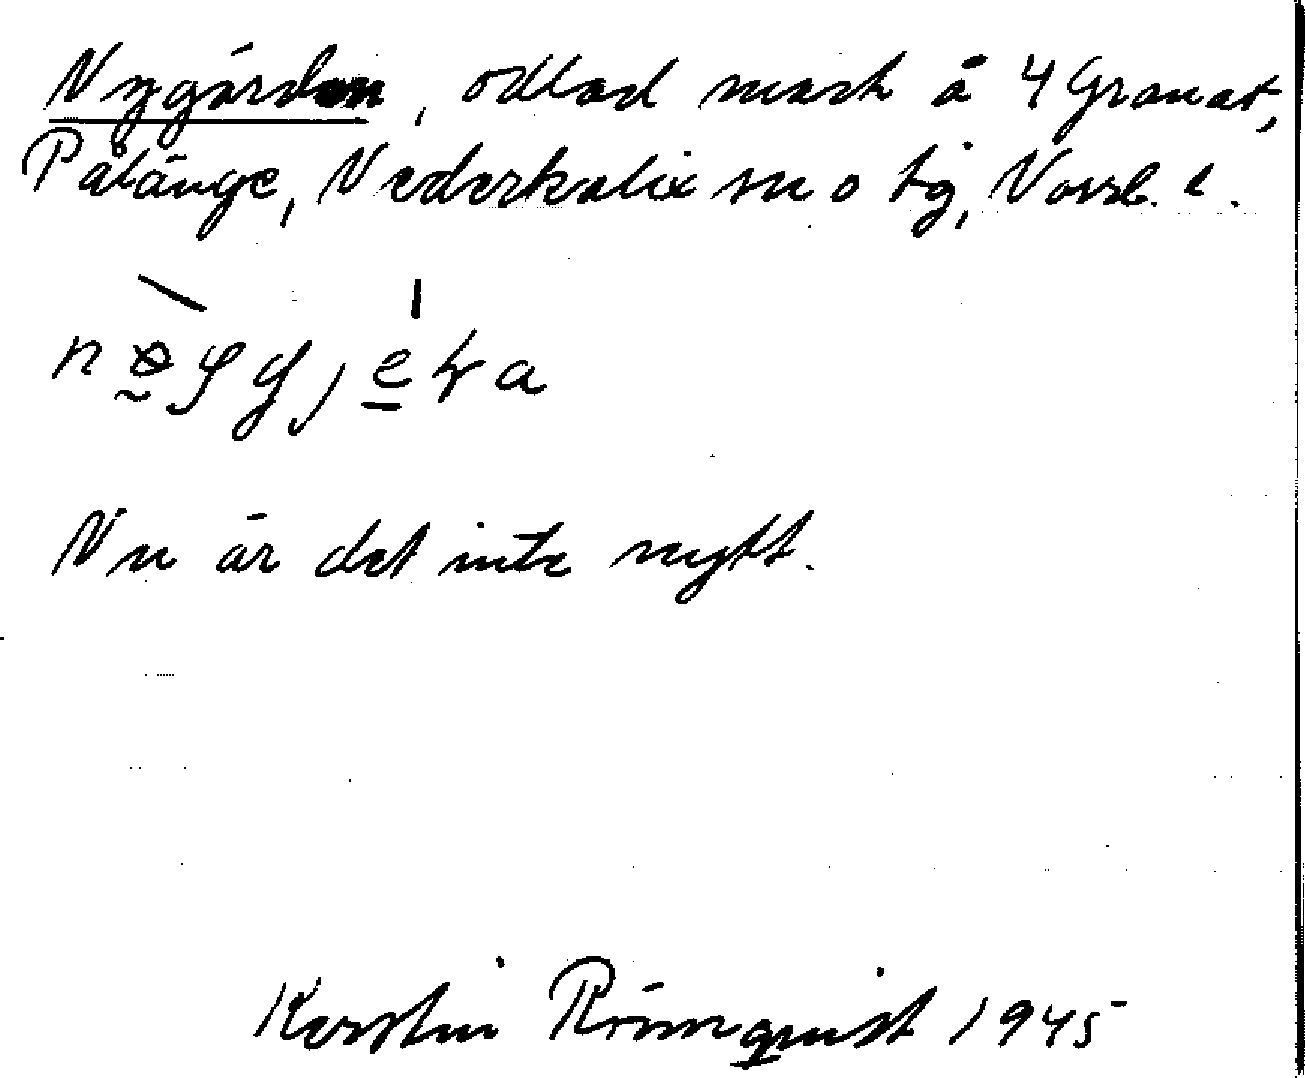 Nygården, odlad mark å 4 Granat,
Pålänge, Nederkalix sn o tg, Norrb. l.
Nu är det inte nytt.
Kerstin Rönnquist 1945